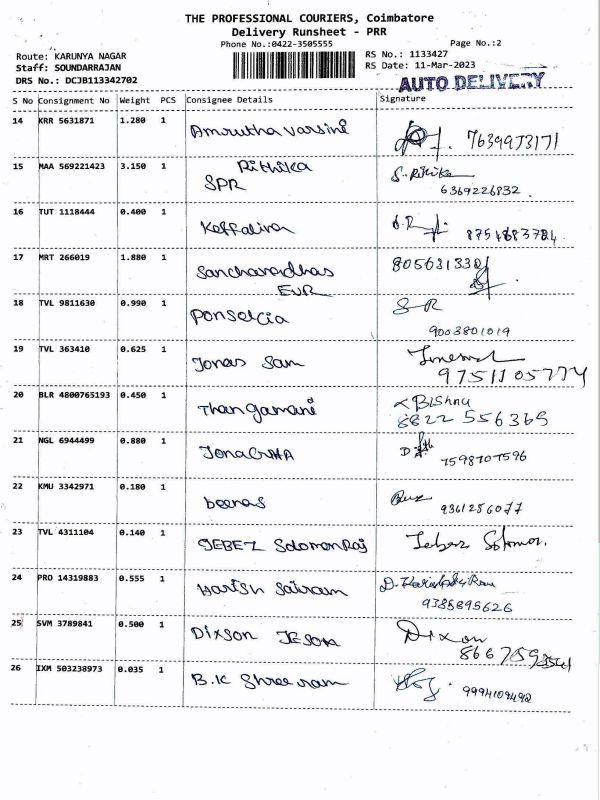 THE PROFESSIONAL COURIERS, Coimbatore
Delivery Runsheet - PRR
Phone No.:0422-3505555
Page No.:2
Route: KARUNYA NAGAR
RS No.: 1133427
Staff: SOUNDARRAJAN
RS Date: 11-Mar-2023
DRS No.: DCJB113342702
AUTO DELIVERY
S No Consignment No Weight PCS Consignee Details Signature
14 KRR 5631871 1.280 1 Amrutha varsini 7639973171
15 MAA 569221423 3.150 1 Rithika SPR S. Ritika 6369226832
16 TUT 1118444 0.400 1
17 MRT 266019 1.880 1 EUR
18 TVL 9811630 0.990 1 SR 9003801019
19 TVL 363410 0.625 1 Jonas Sam
20 BLR 4800765193 0.450 1 Thangamani Bishnu 8822 556365
21 NGL 6944499 0.880 1 7598707596
22 KMU 3342971 0.180 1 beenas 9361256077
23 TVL 4311104 0.140 1 JEBEZ Solomon Raj Jebez Solomon.
24 PRO 14319883 0.555 1 Harish Sairam 9385895626
25 SVM 3789841 0.500 1 Dixson Dixon
26 IXM 503238973 0.035 1 B.K Shree ram 9994109492